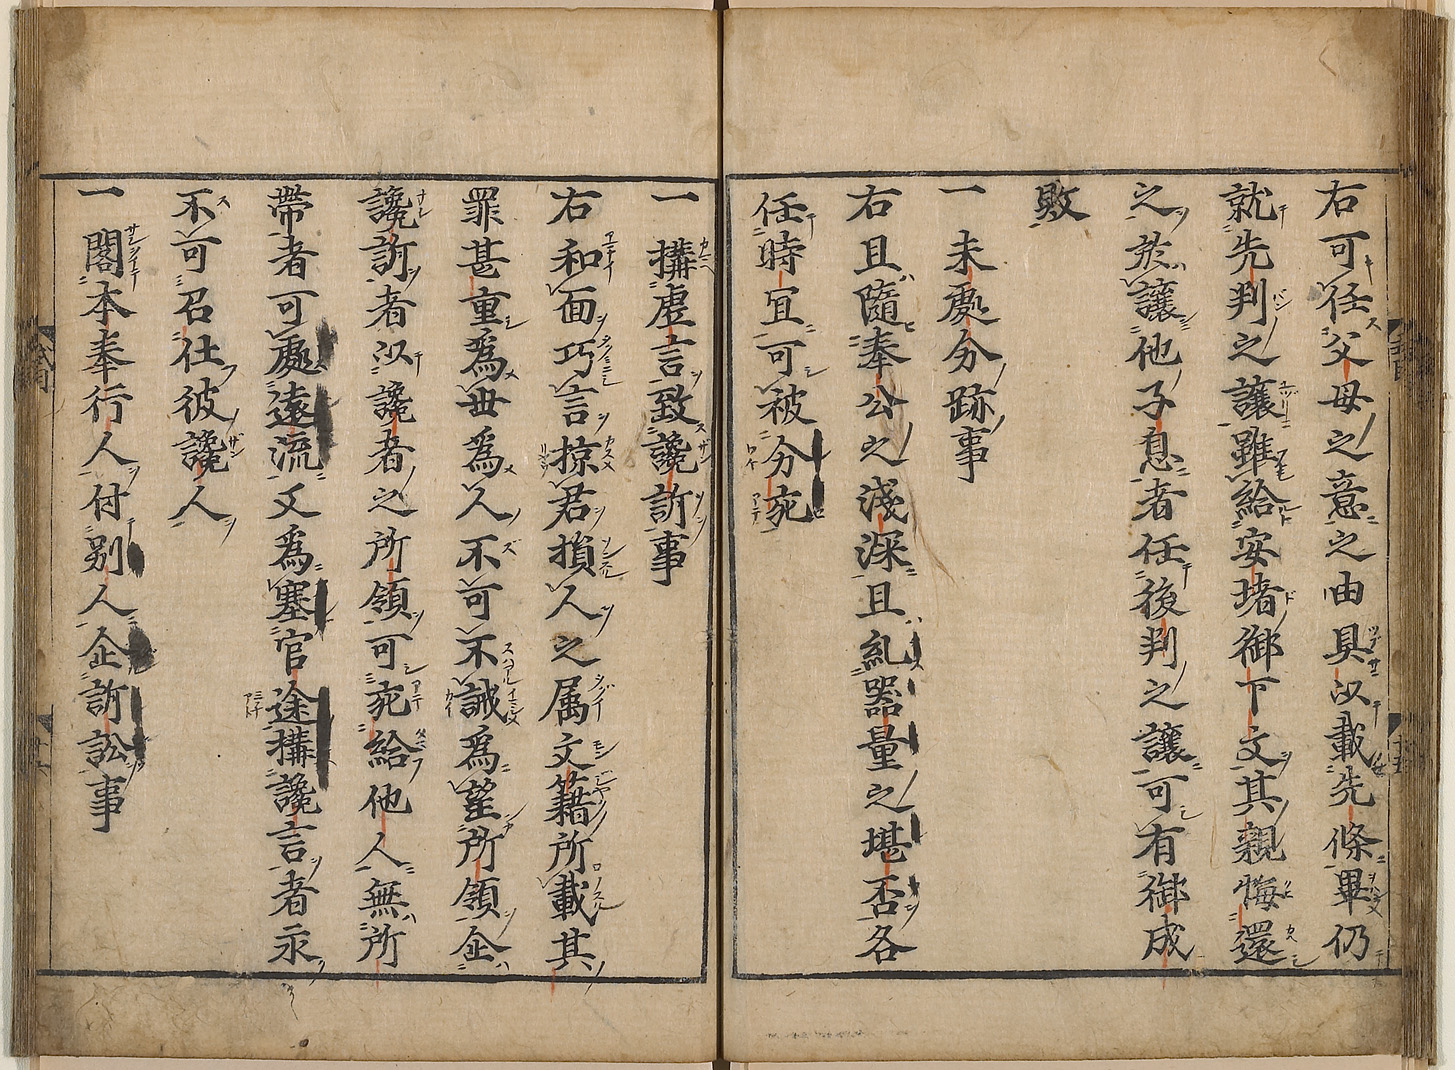 右可任父母之意之由具以載先條畢仍
就先判之讓雖給安堵御下文其親悔還
之於讓他子息者任後判之讓可有御成
敗
一 未處分跡事
右且隨奉公之淺深且糺器量之堪否各
任時冝可被分宛
一 搆虛言致讒訴事
右和面巧言掠君損人之属文籍所載其
罪甚重爲世爲人不可不誡爲望所領企
讒訴者以讒者之所領可宛給他人無所
帶者可處遠流又爲塞官途搆讒言者永
不可召仕彼讒人
一 閣本奉行人付别人企訴訟事